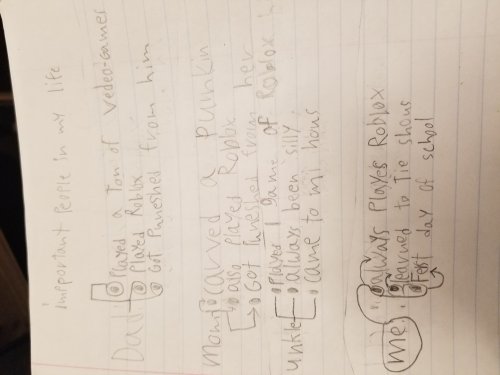 imeportant people in my life
Dad
Played a Ton of vedeo-gamer
Played Roblox
Got Puneshed from him
Mom carved a Punkin
also played Roblox
Got Puneshed from her
unkle Played 1 game of Roblox
always been silly
came to mi hous
me! always Played Roblox
Learned to Tie shous
Ferst day of school